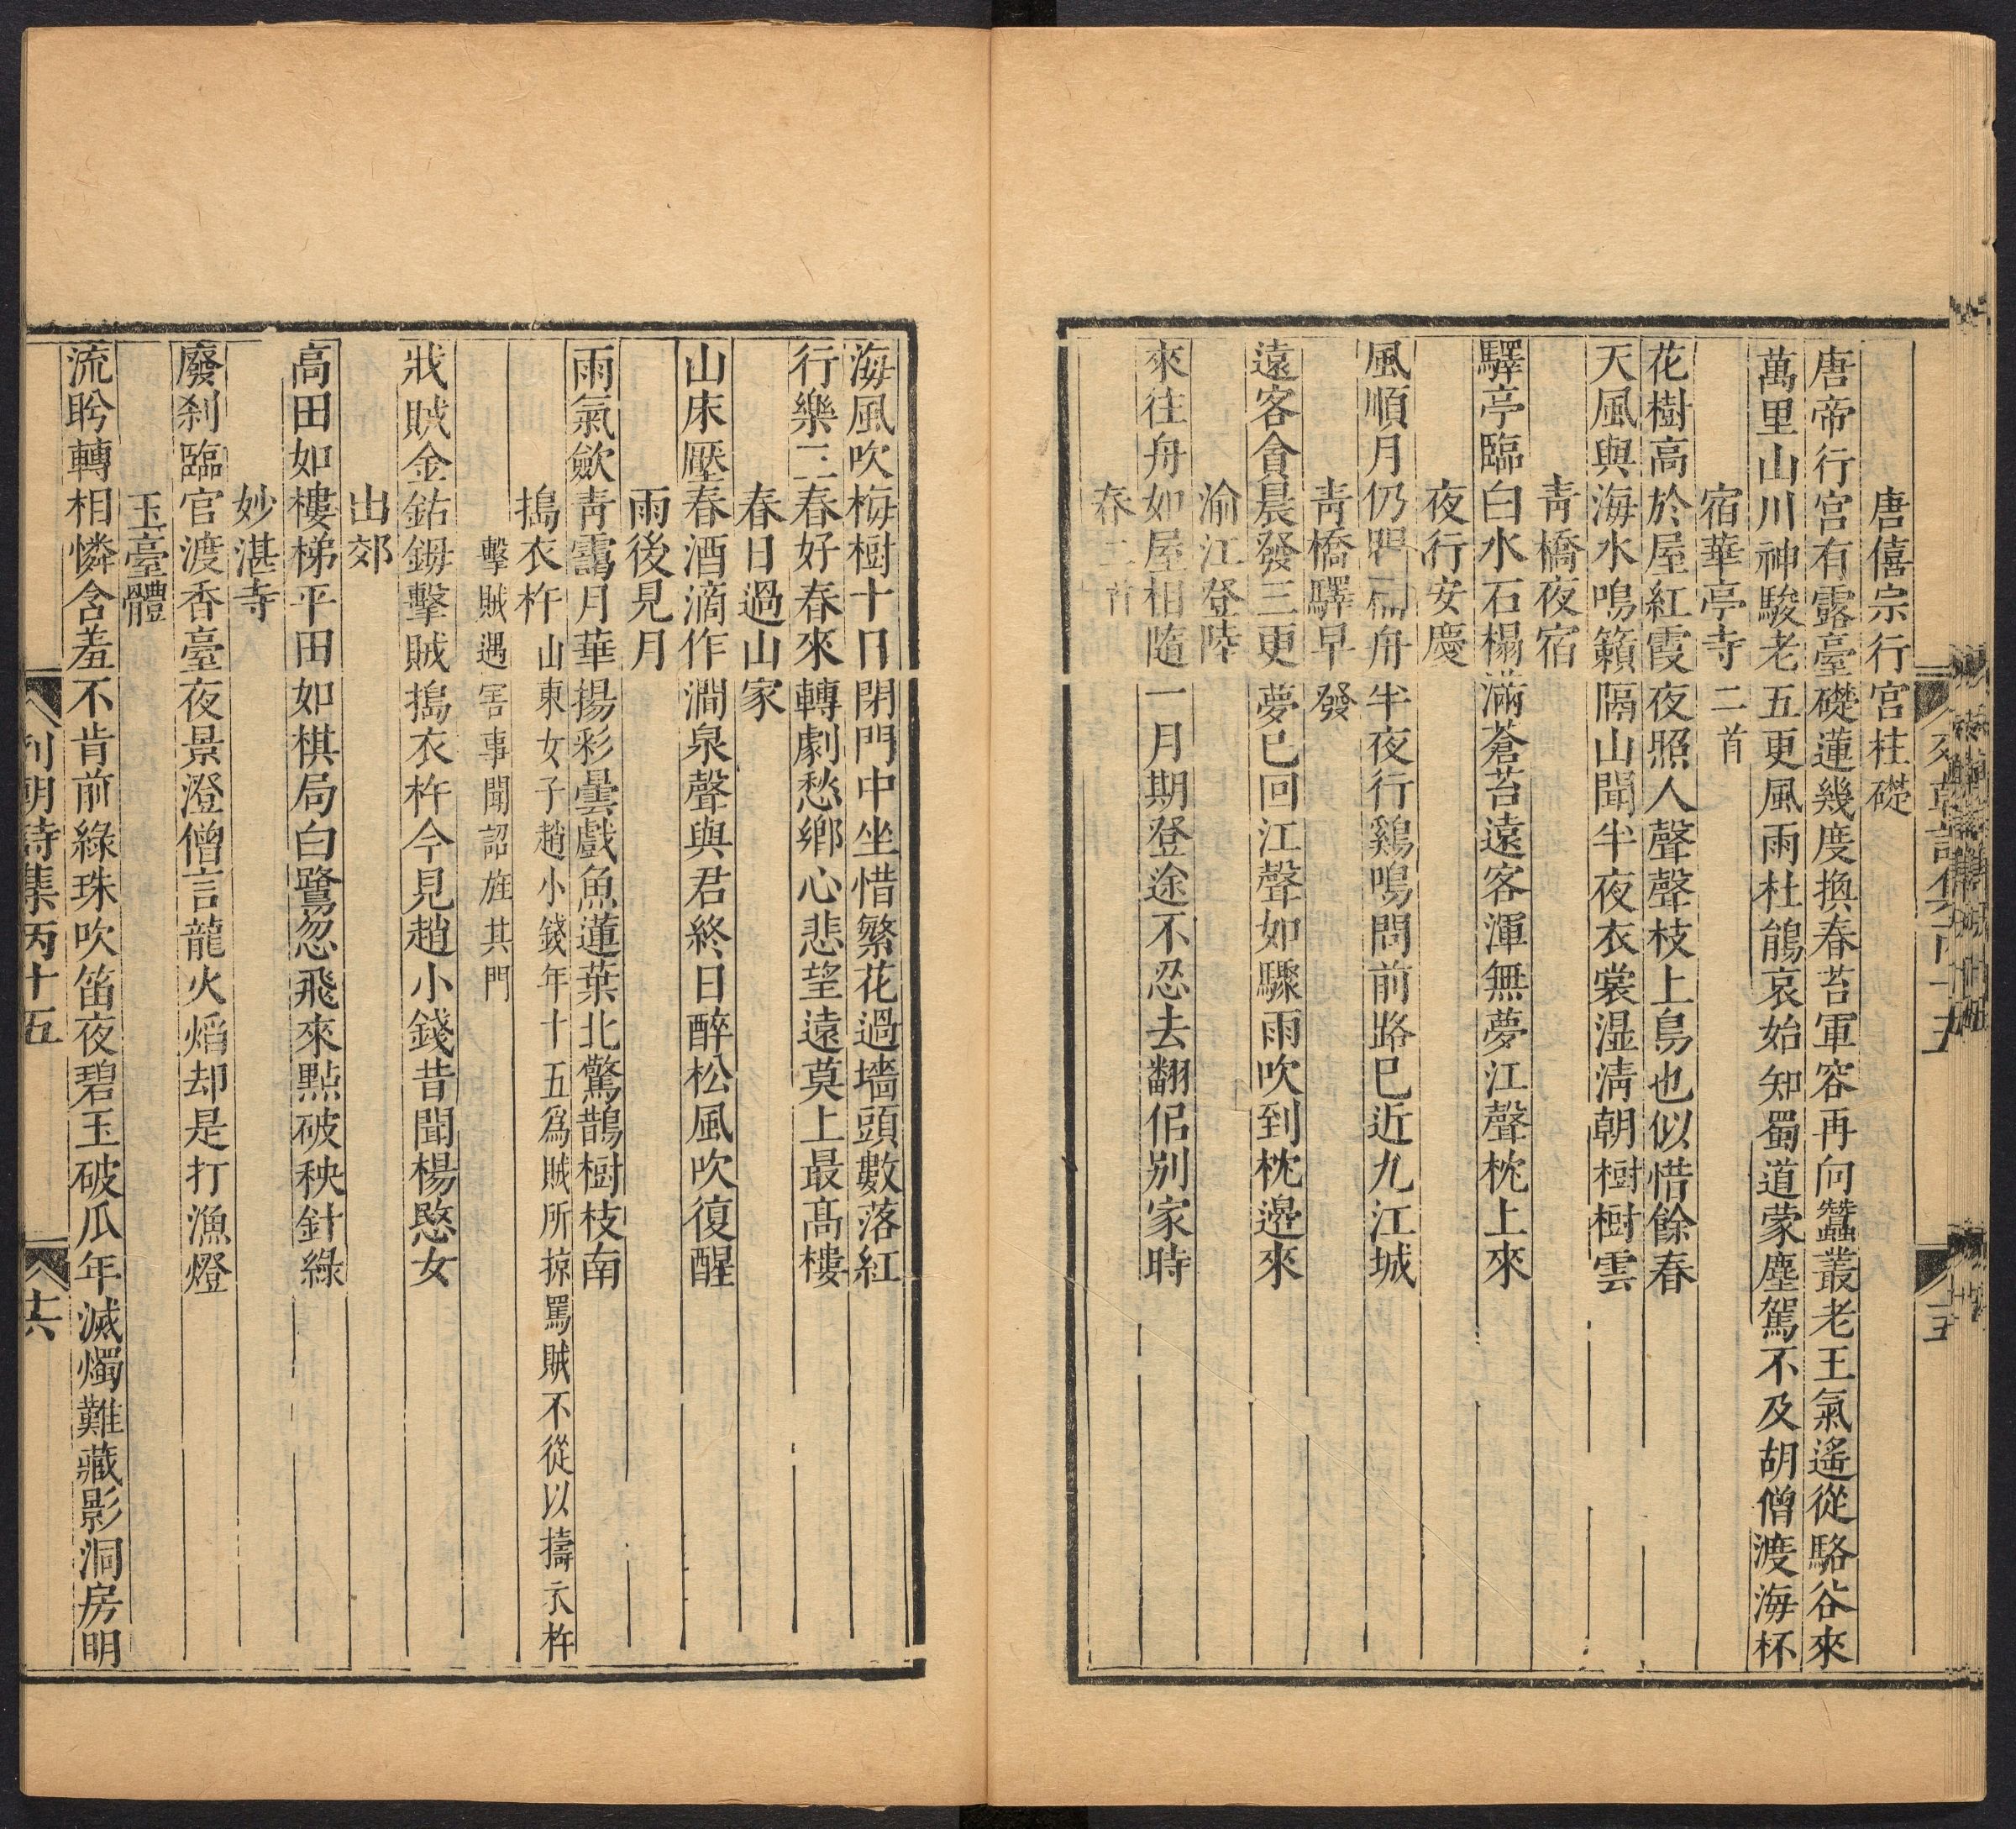 唐僖宗行宫柱礎
唐帝行宫有露臺礎蓮幾度換春苔軍容再向蠶叢老王氣遙從駱谷來
萬里山川神駿老五更風雨杜鵑哀始知蜀道蒙塵駕不及胡僧渡海杯
宿華亭寺二首
花樹高於屋紅霞夜照人聲聲枝上鳥也似惜餘春
天風與海水鳴籟隔山聞半夜衣裳湿淸朝樹樹雲
靑橋夜宿
驛亭臨白水石榻滿蒼苔遠客渾無夢江聲枕上來
夜行安慶
風順月仍舟半夜行鷄鳴問前路已近九江城
靑橋驛早發
遠客貪晨發三更夢已回江聲如驟雨吹到枕邊來
渝江登陸
來往舟如屋相隨一月期登途不忍去翻佀别家時
春二首
海風吹梅樹十日閉門中坐惜繁花過墻頭數落紅
行樂三春好春來轉劇愁鄉心悲望遠莫上最高樓
春日過山家
山床壓春酒滴作澗泉聲與君終日醉松風吹復醒
雨後見月
雨氣歛靑靄月華揚彩曇戲魚蓮葉北驚鵲樹枝南
搗衣杵山東女子趙小錢年十五爲賊所掠罵賊不從以擣衣杵
擊賊遇害事聞詔旌其門
戕賊金鈷鉧擊賊搗衣杵今見趙小錢昔聞楊愍女
山郊
高田如樓梯平田如棋局白鷺忽飛來點破秧針綠
妙湛寺
廢刹臨官渡香臺夜景澄僧言龍火熖却是打漁燈
玉臺體
流盻轉相憐含羞不肯前綠珠吹笛夜碧玉破瓜年滅燭難藏影洞房明
列朝詩集丙十五
十六